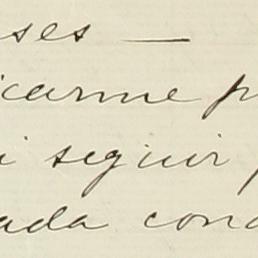 ses —
icarme p
i seguir p
ada cond